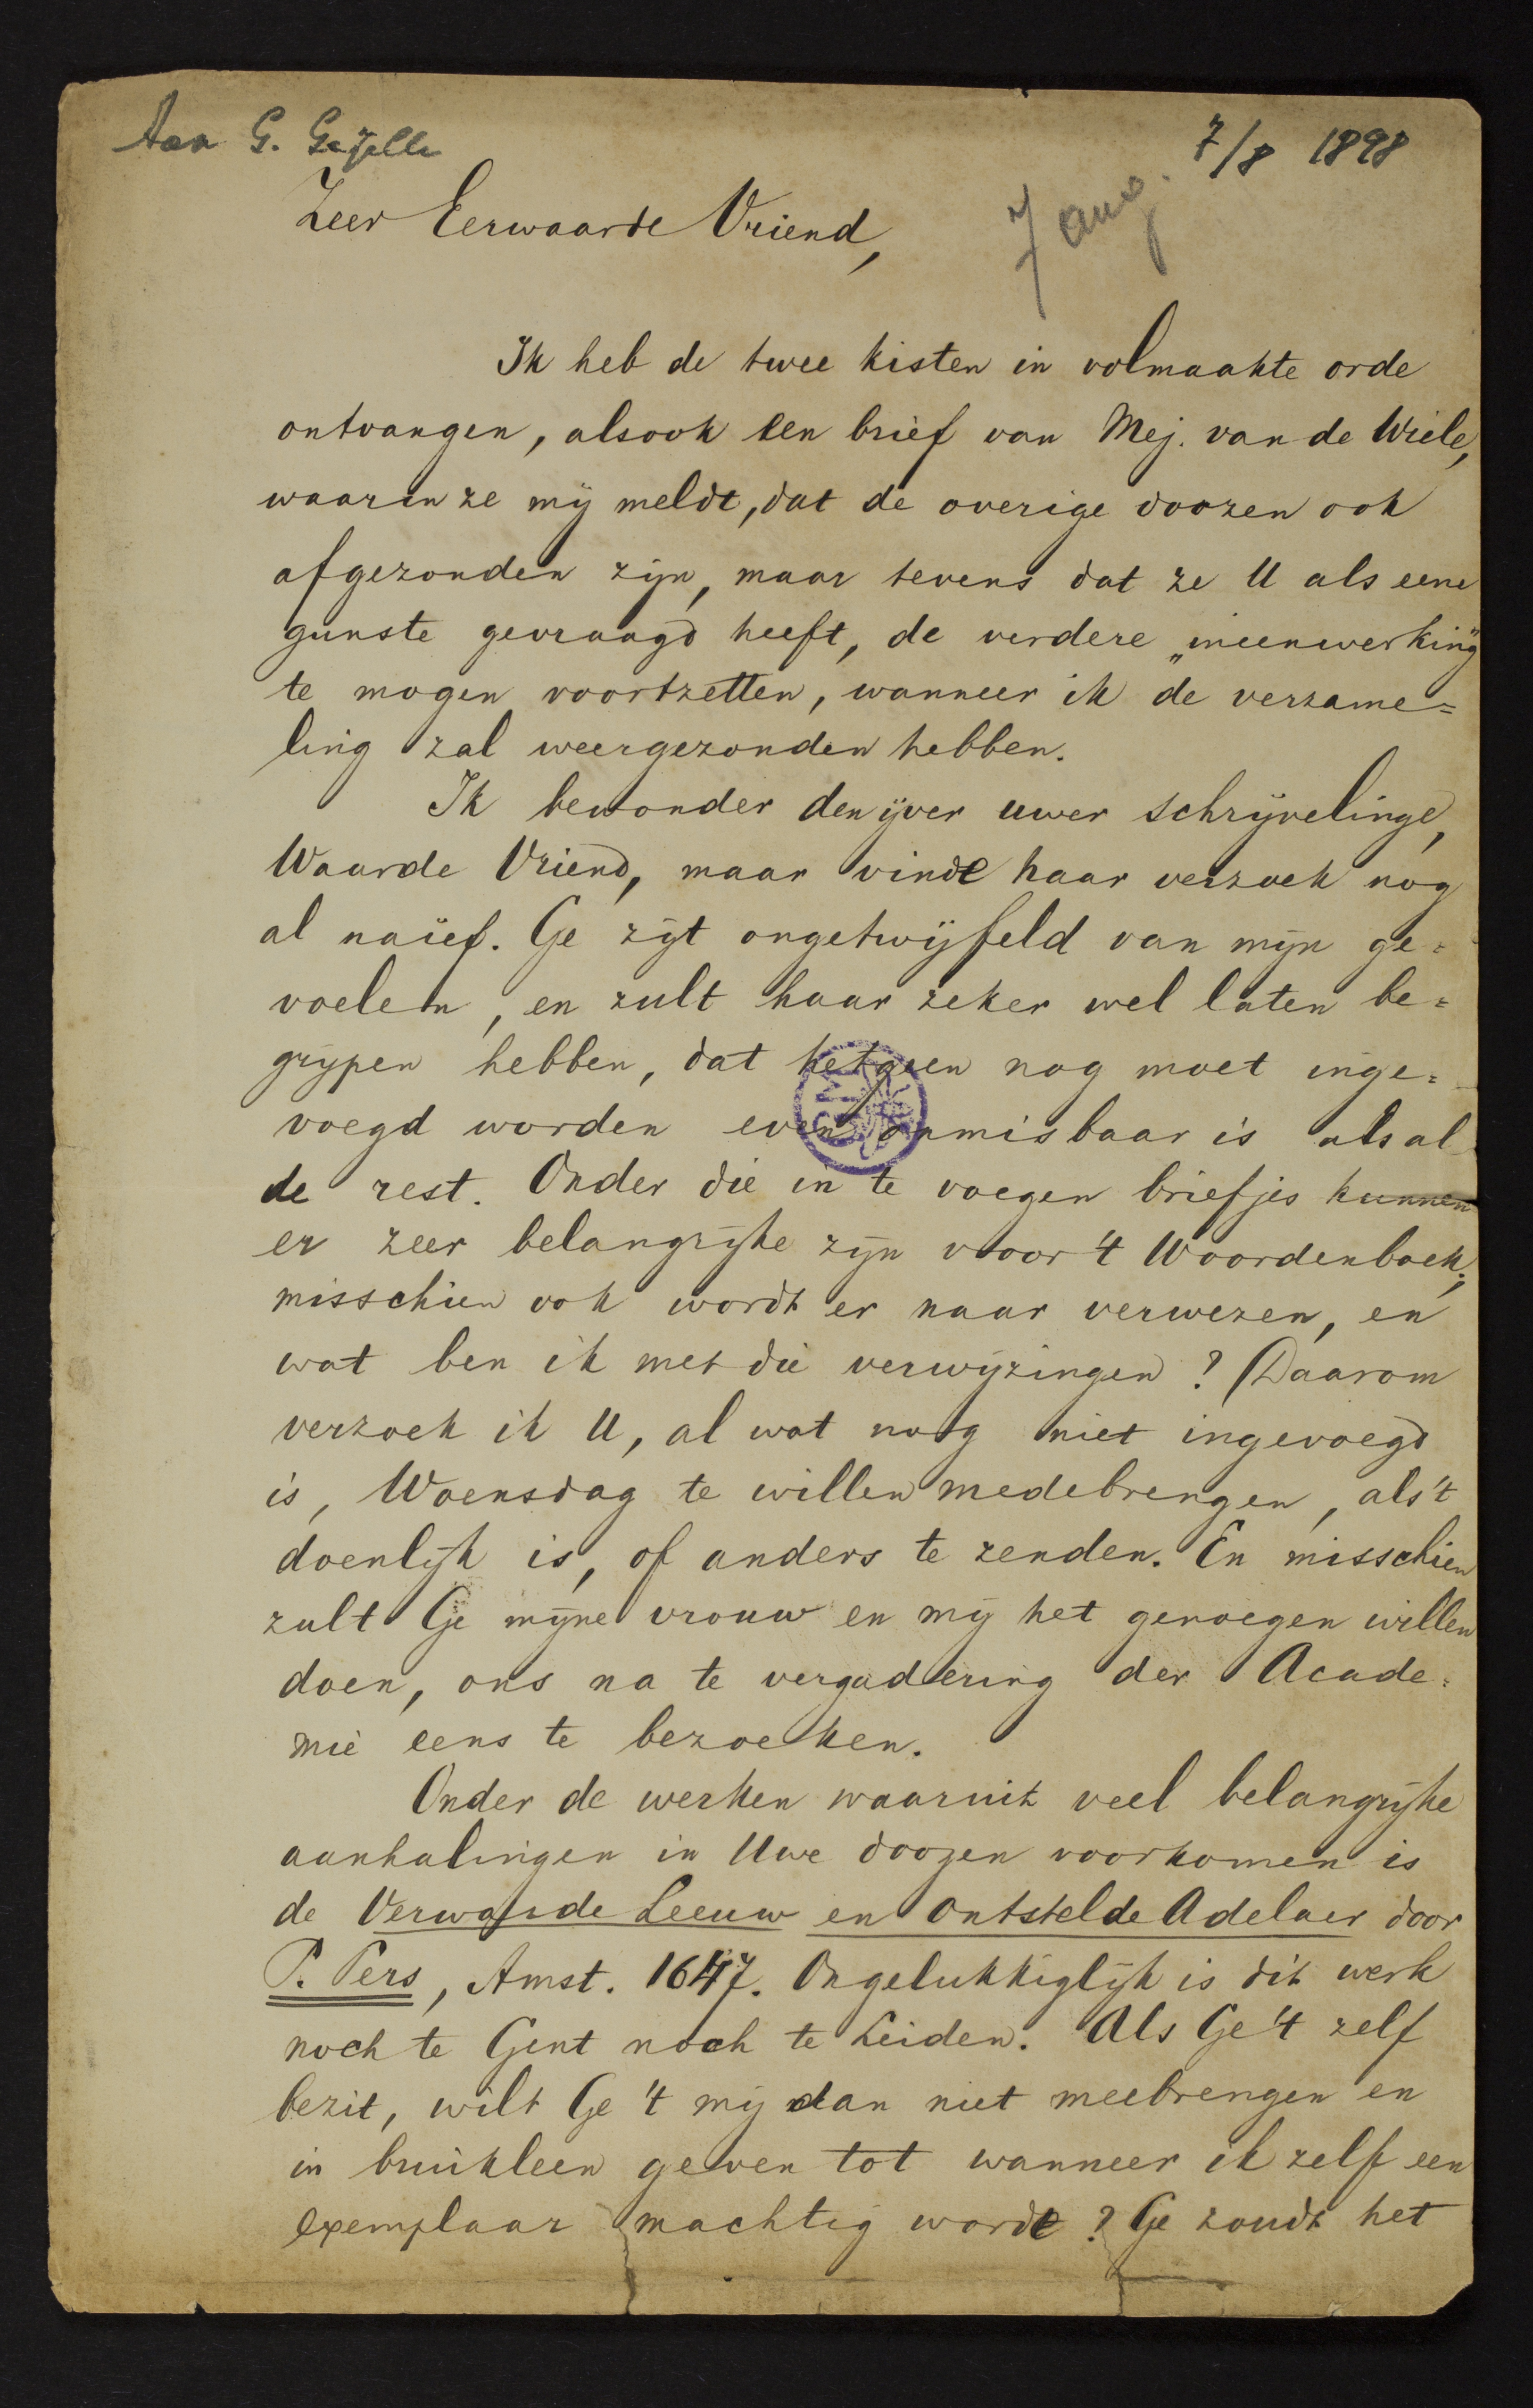 Aan G. Gezelle
7/8 1898
7 aug.
Zeer Eerwaarde Vriend,
Ik heb de twee kisten in volmaakte orde
ontvangen, alsook een brief van Mej. van de Wiele,
waarin ze mij meldt, dat de overige doozen ook
afgezonden zijn, maar tevens dat ze U als eene
gunste gevraagd heeft, de verdere „ineenwerking"
te mogen voortzetten, wanneer ik de verzame=
ling zal weergezonden hebben.
Ik bewonder den ijver uwer schrijvelinge,
Waarde Vriend, maar vinde haar verzoek nog
al naïef. Ge zijt ongetwijfeld van mijn ge=
voelen, en zult haar zeker wel laten be=
grijpen hebben, dat hetgeen nog moet inge=
voegd worden even onmisbaar is als al
de rest. Onder die in te voegen briefjes kunnen
er zeer belangrijke zijn voor 't Woordenboek;
misschien ook wordt er naar verwezen, en
wat ben ik met die verwijzingen? Daarom
verzoek ik U, al wat nog niet ingevoegd
is, Woensdag te willen medebrengen, als 't
doenlijk is, of anders te zenden. En misschien
zult Ge mijne vrouw en mij het genoegen willen
doen, ons na te vergadering der Acade=
mie eens te bezoeken.
Onder de werken waaruit veel belangrijke
aanhalingen in Uwe doozen voorkomen is
de Verwarde Leeuw en Ontstelde Adelaer door
P. Pers, Amst. 1647. Ongelukkiglijk is dit werk
noch te Gent noch te Leiden. Als Ge 't zelf
bezit, wilt Ge 't mij dan niet meebrengen en
in bruikleen geven tot wanneer ik zelf een
exemplaar machtig worde? Ge zoudt het